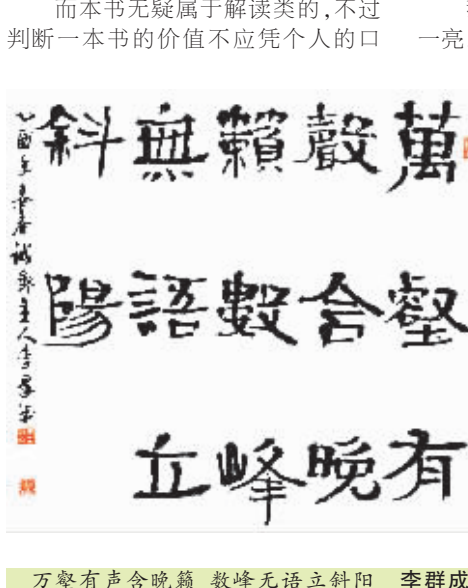 而本书无疑属于解读类的,不过
判断一本书的价值不应凭个人的口
一亮
萬壑有
聲含晚
籟數峰
無語立
斜陽
乙酉年 主人李群成
万壑有声含晚籁 数峰无语立斜阳 李群成